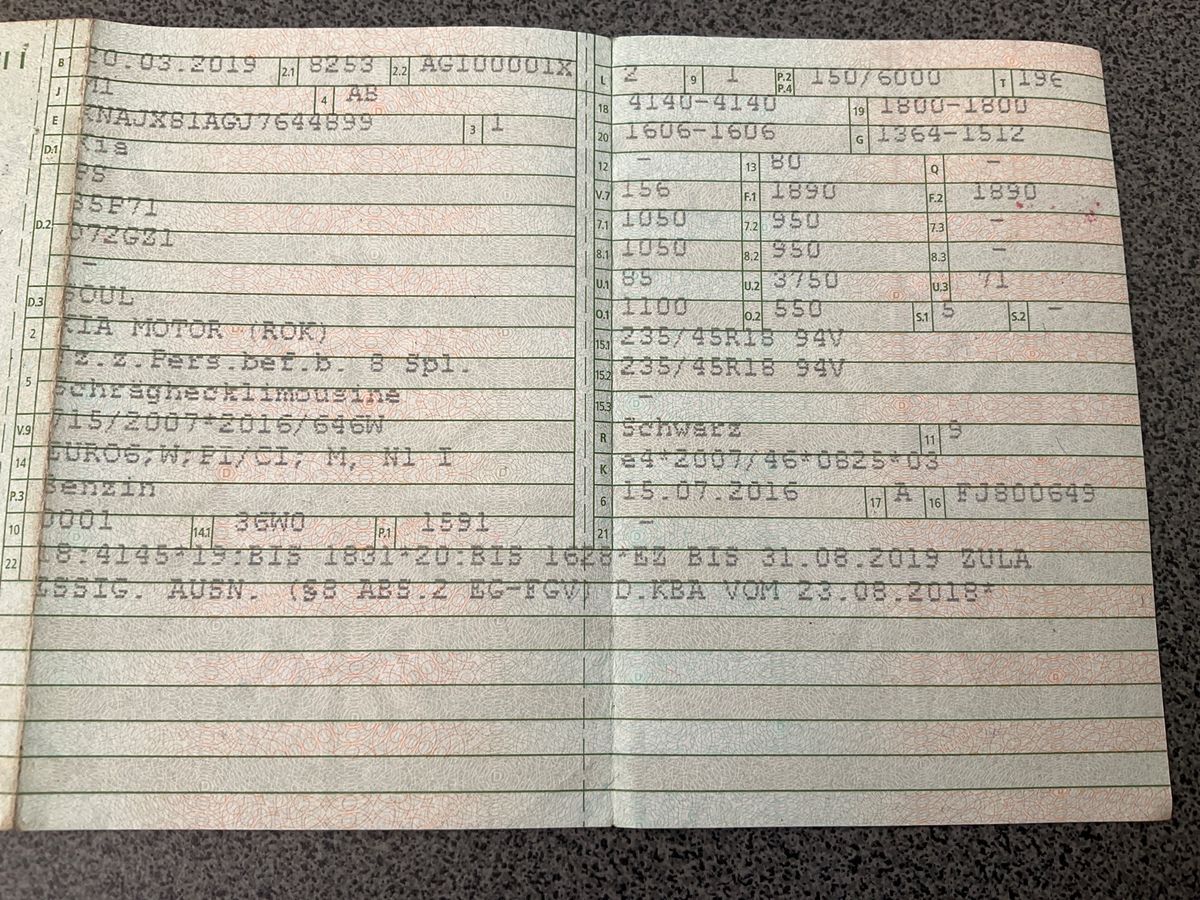 B 20.03.2019 2.1 8253 2.2 AGI00001X
J M1 4 AB
E KNAJX81AGJ7644899 3 1
D.1 Kia
PS
D.2 B5P71
D72GZ1
-
D.3 SOUL
2 KIA MOTOR (ROK)
Fz.z.Pers.bef.b. 8 Spl.
5 Schräghecklimousine
V.9 715/2007*2016/646W
14 EURO6;W;PI/CI; M, N1 I
P.3 Benzin
10 0001 14.1 36W0 P.1 1591
22 18:4145*19:BIS 1831*20:BIS 1628*EZ BIS 31.08.2019 ZULA
ESSIG. AUSN. (§8 ABS.2 EG-FGV) D.KBA VOM 23.08.2018*
L 2 9 1 P.2 P.4 150/6000 T 196
18 4140-4140 19 1800-1800
20 1606-1606 G 1364-1512
12 - 13 80 Q -
V.7 156 F.1 1890 F.2 1890
7.1 1050 7.2 950 7.3 -
8.1 1050 8.2 950 8.3 -
U.1 85 U.2 3750 U.3 71
O.1 1100 O.2 550 S.1 5 S.2 -
15.1 235/45R18 94V
15.2 235/45R18 94V
15.3 -
R Schwarz 11 9
K e4*2007/46*0825*03
6 15.07.2016 17 A 16 FJ800649
21 -